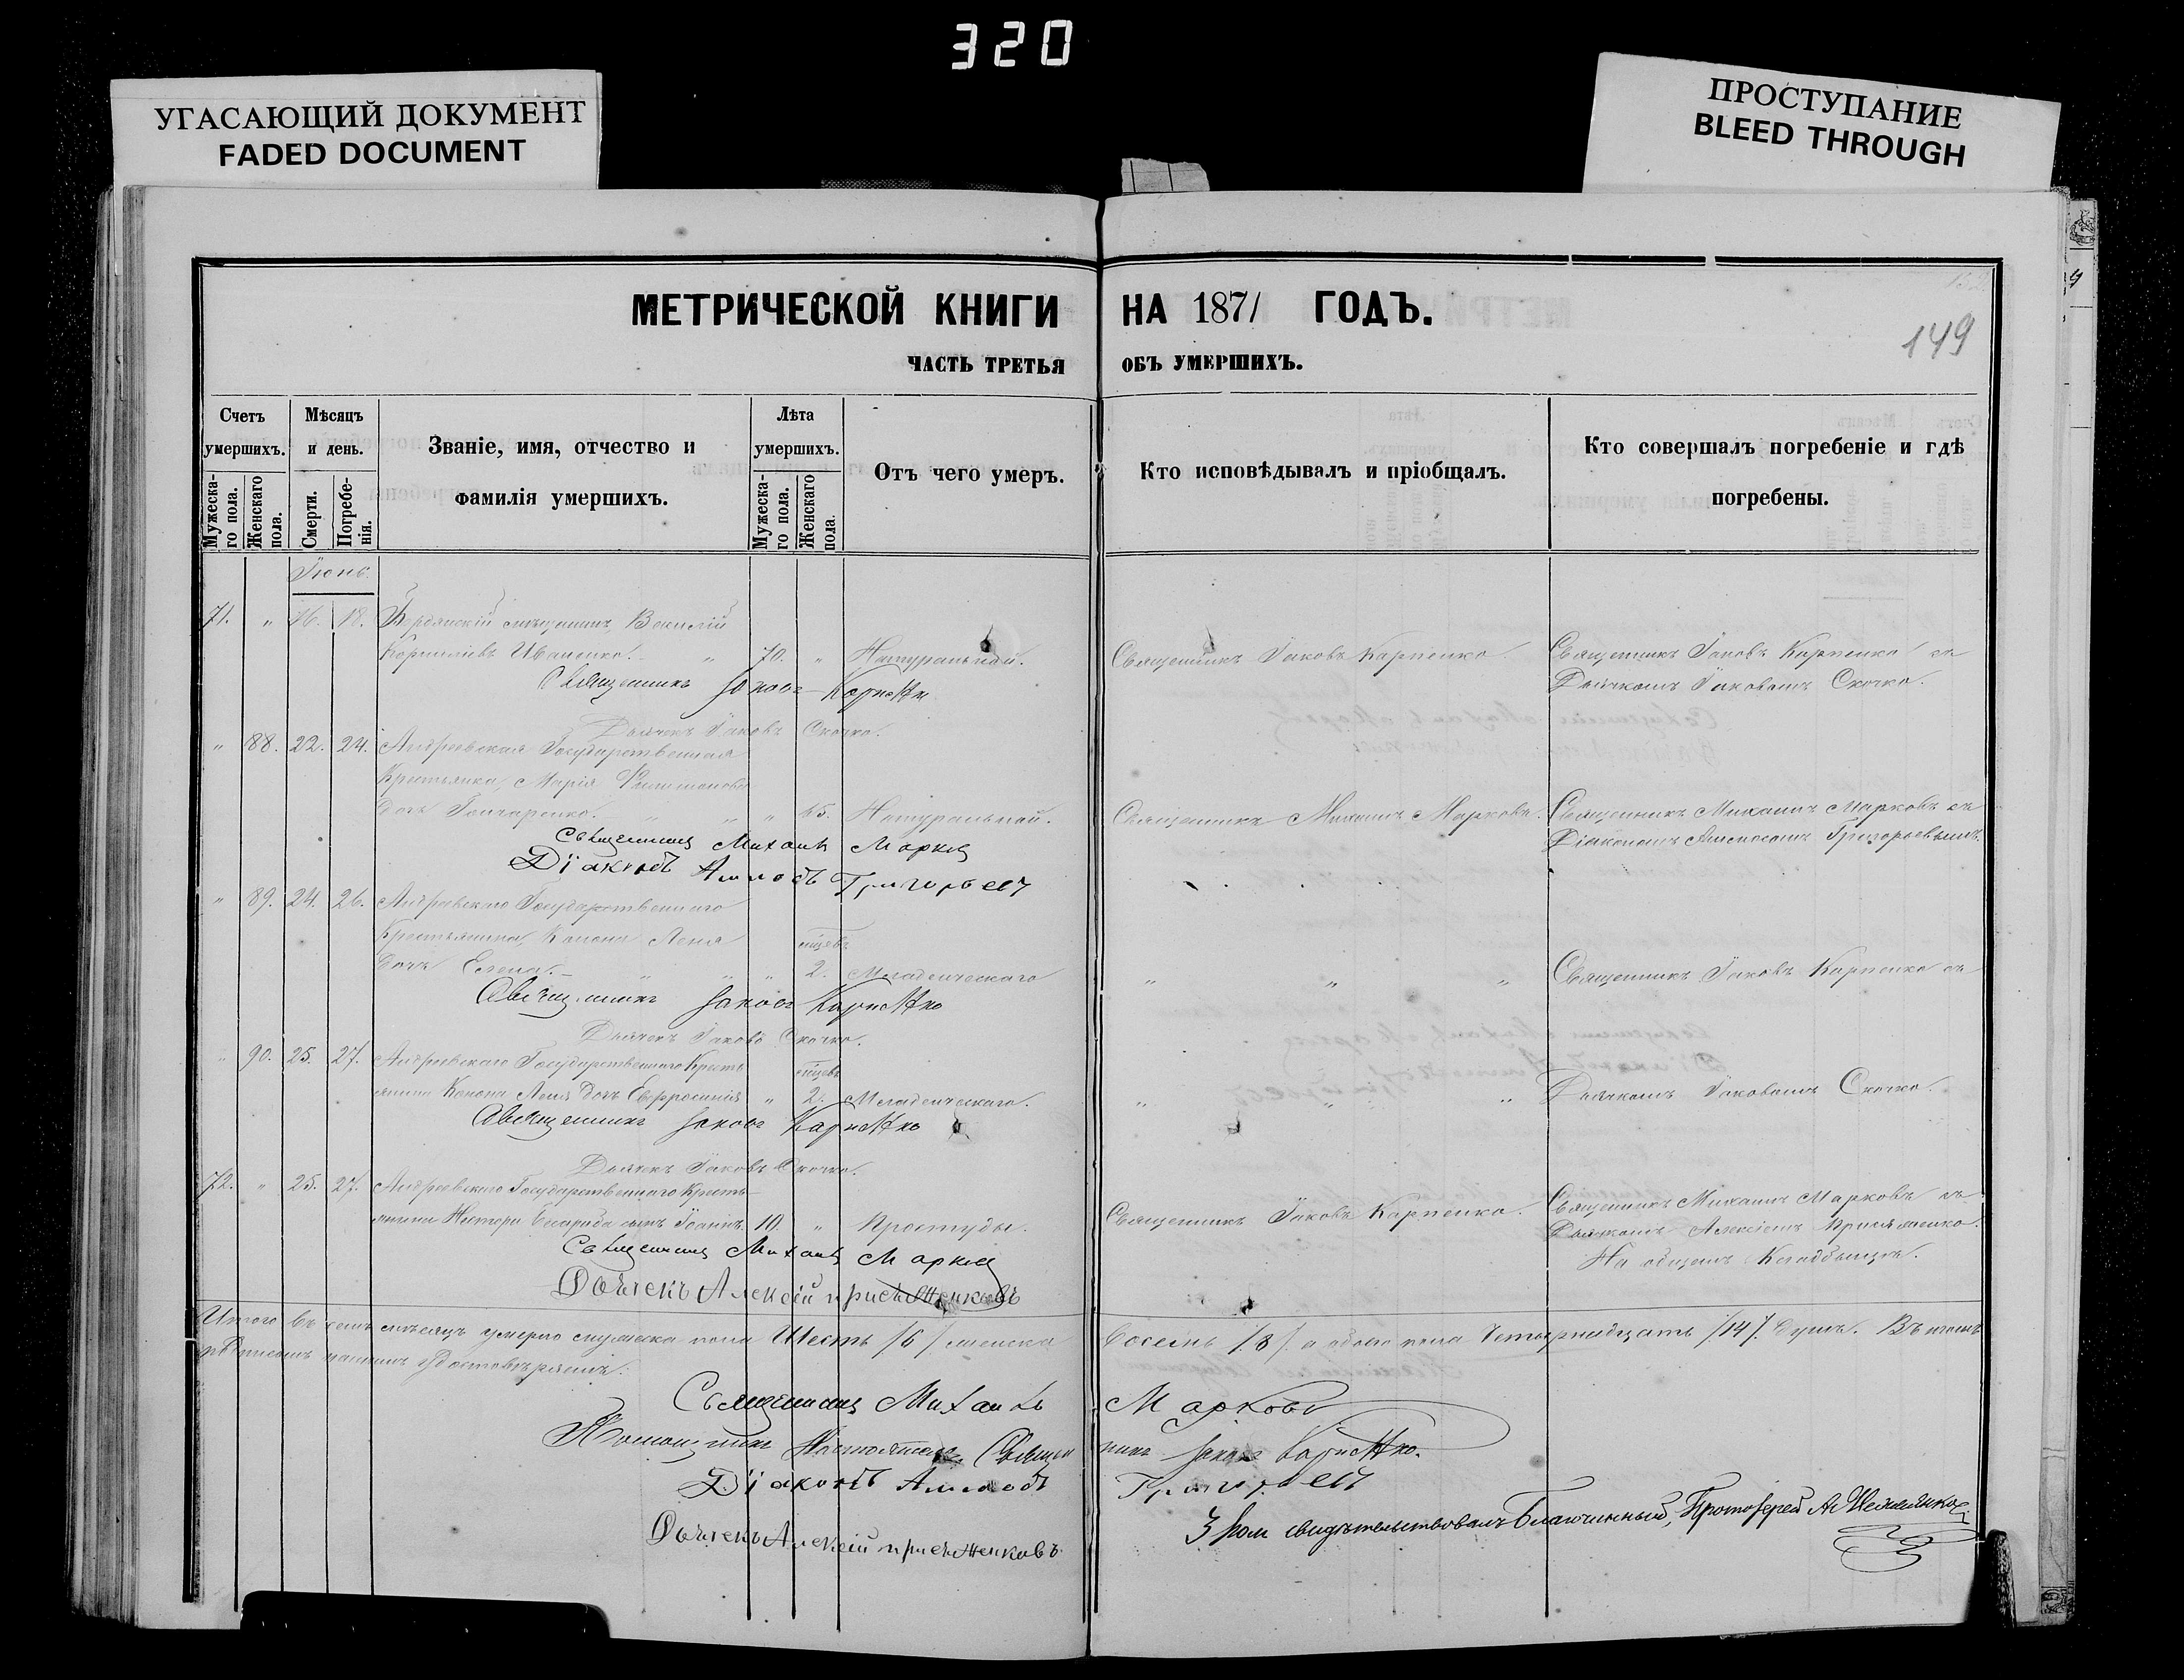 320
УГАСАЮЩИЙ ДОКУМЕНТ
FADED DOCUMENT
ПРОСТУПАНИЕ
BLEED THROUGH
МЕТРИЧЕСКОЙ КНИГИ НА 1871 ГОДЪ.
149
ЧАСТЬ ТРЕТЬЯ ОБЪ УМЕРШИХЪ.
Счетъ умершихъ.
Мужеска-го пола.
Женскаго пола.
Мѣсяцъ и день.
Смерти.
Погребе-нія.
Званіе, имя, отчество и фамилія умершихъ.
Лѣта умершихъ.
Мужеска-го пола.
Женскаго пола.
Отъ чего умеръ.
Кто исповѣдывалъ и пріобщалъ.
Кто совершалъ погребеніе и гдѣ погребены.
Іюнь.
71. " 16. 18. Бердянскій мѣщанинъ, Василій
Корниліевъ Иваненко. " 70. " Натуральной. Священникъ Іаковъ Карпенко. Священникъ Іаковъ Карпенко съ
Дьячкомъ Іаковомъ Скочко.
Священникъ Іаковъ Карпенко
Дьячекъ Іаковъ Скочко.
" 88. 22. 24. Андреевская Государственная
Крестьянка, Марія Филимонова
дочь Гончаренко. " " " 45. Натуральной. Священникъ Михаилъ Марковъ. Священникъ Михаилъ Марковъ съ
Діакономъ Григорьевымъ.
Священникъ Михаилъ Марковъ
Діаконъ Григорьевъ
" 89. 24. 26. Андреевскаго Государственнаго
Крестьянина, Конона Леня мѣсяц
дочь Елена. " " " 2. Младенческаго " " " Священникъ Іаковъ Карпенко съ
Священникъ Іаковъ Карпенко
Дьячекъ Іаковъ Скочко.
" 90. 25. 27. Андреевскаго Государственнаго Кресть
янина Конона Леня дочь Евфросинія " 2. Младенческаго. " " " Дьячкомъ Іаковомъ Скочко.
Священникъ Іаковъ Карпенко
Дьячекъ Іаковъ Скочко.
72. " 25. 27. Андреевскаго Государственнаго Кресть-
янина сынъ Іоаннъ 10. " Простуды. Священникъ Іаковъ Карпенко. Священникъ Михаилъ Марковъ съ
Дьячкомъ Алексіемъ
На общемъ Кладбищѣ.
Священникъ Михаилъ Марковъ
Дьячекъ Алексій
Итого въ семъ мѣсяцѣ умерло мужеска пола Шесть /6/ женска Восемь /8/ а обоего пола Четырнадцать /14/ душъ. Въ чемъ
подписомъ нашимъ удостовѣряемъ.
Священникъ Михаилъ Марковъ
Помощникъ Настоятеля Священникъ Іаковъ Карпенко.
Діаконъ Григорьевъ
Дьячекъ Алексій
свидѣтельствовалъ Благочинный, Протоіерей